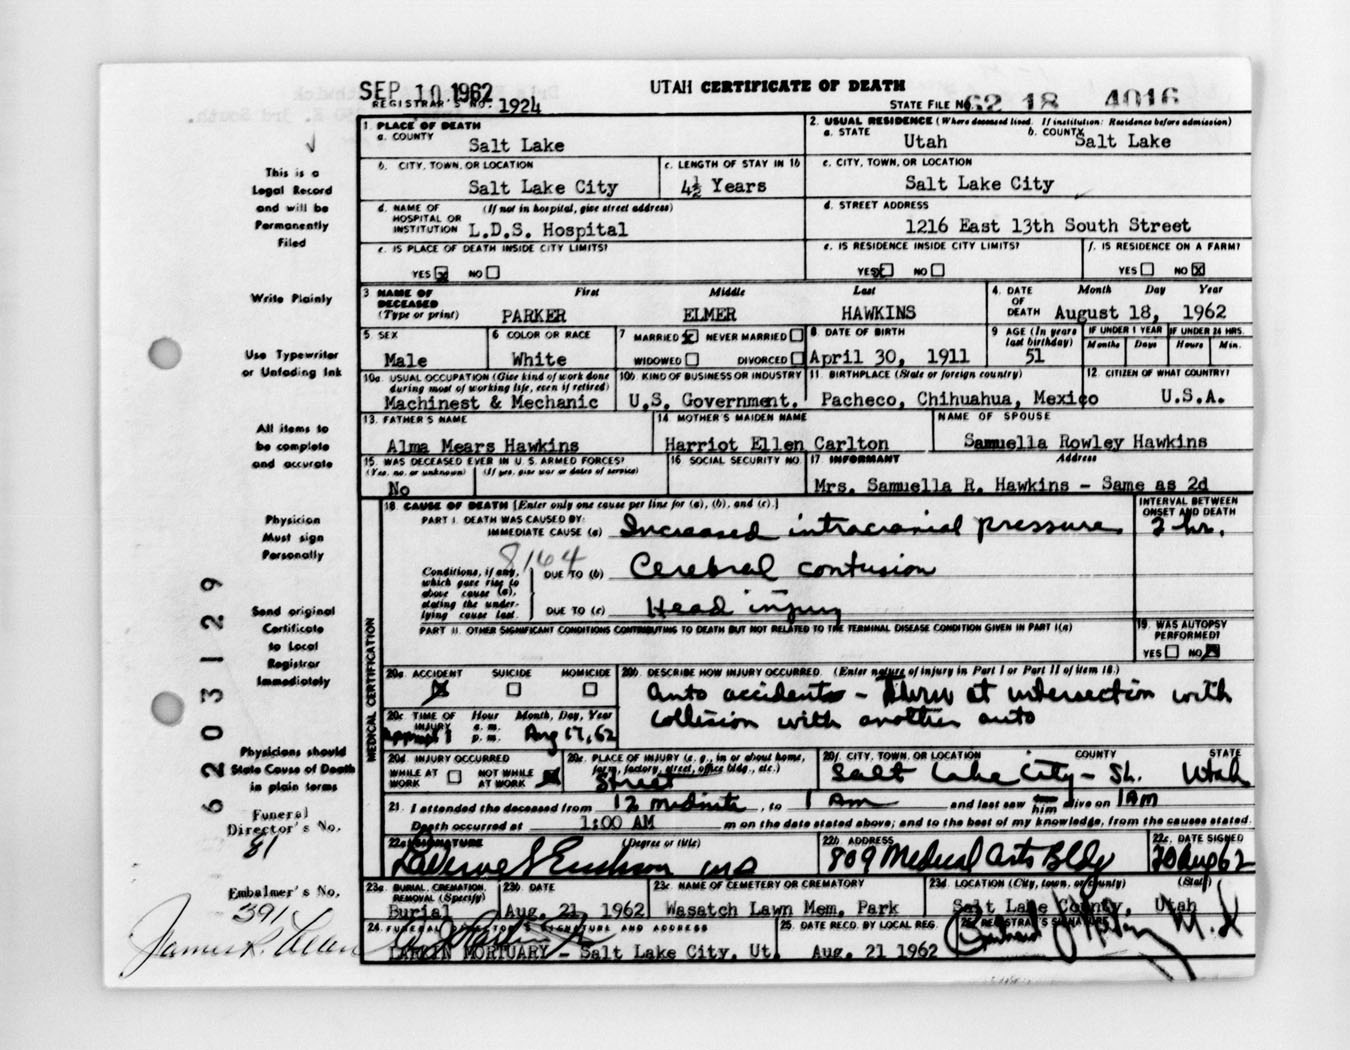 SEP 10 1962
UTAH CERTIFICATE OF DEATH
REGISTRAR'S NO. 1924
STATE FILE NO. 62 18 4016
1. PLACE OF DEATH
a. COUNTY
Salt Lake
2. USUAL RESIDENCE (Where deceased lived. If institution: Residence before admission)
a. STATE Utah b. COUNTY Salt Lake
b. CITY, TOWN, OR LOCATION
Salt Lake City
c. LENGTH OF STAY IN 1b
4½ Years
c. CITY, TOWN, OR LOCATION
Salt Lake City
d. NAME OF HOSPITAL OR INSTITUTION (If not in hospital, give street address)
L.D.S. Hospital
d. STREET ADDRESS
1216 East 13th South Street
e. IS PLACE OF DEATH INSIDE CITY LIMITS?
YES X NO
e. IS RESIDENCE INSIDE CITY LIMITS?
YES X NO
f. IS RESIDENCE ON A FARM?
YES NO X
3 NAME OF DECEASED (Type or print)
First Middle Last
PARKER ELMER HAWKINS
4. DATE OF DEATH Month Day Year
August 18, 1962
5 SEX
Male
6 COLOR OR RACE
White
7 MARRIED X NEVER MARRIED
WIDOWED DIVORCED
8 DATE OF BIRTH
April 30, 1911
9 AGE (In years last birthday)
51
IF UNDER 1 YEAR
Months Days
IF UNDER 24 HRS.
Hours Min.
10a USUAL OCCUPATION (Give kind of work done during most of working life, even if retired)
Machinest & Mechanic
10b. KIND OF BUSINESS OR INDUSTRY
U.S. Government.
11 BIRTHPLACE (State or foreign country)
Pacheco, Chihuahua, Mexico
12 CITIZEN OF WHAT COUNTRY?
U.S.A.
13. FATHER'S NAME
Alma Mears Hawkins
14 MOTHER'S MAIDEN NAME
Harriot Ellen Carlton
NAME OF SPOUSE
Samuella Rowley Hawkins
15. WAS DECEASED EVER IN U S ARMED FORCES?
(Yes, no, or unknown) (If yes, give war or dates of service)
No
16 SOCIAL SECURITY NO.
17 INFORMANT Address
Mrs. Samuella R. Hawkins - Same as 2d
18. CAUSE OF DEATH [Enter only one cause per line for (a), (b), and (c).]
INTERVAL BETWEEN ONSET AND DEATH
PART I. DEATH WAS CAUSED BY:
IMMEDIATE CAUSE (a) Increased intracranial pressure 2 hr.
8164
Conditions, if any, which gave rise to above cause (a), stating the under-lying cause last.
DUE TO (b) Cerebral contusion
DUE TO (c) Head injury
PART II. OTHER SIGNIFICANT CONDITIONS CONTRIBUTING TO DEATH BUT NOT RELATED TO THE TERMINAL DISEASE CONDITION GIVEN IN PART I(a)
19. WAS AUTOPSY PERFORMED?
YES NO X
MEDICAL CERTIFICATION
20a. ACCIDENT SUICIDE HOMICIDE
X
20b DESCRIBE HOW INJURY OCCURRED. (Enter nature of injury in Part I or Part II of item 18.)
Auto accident - at intersection with
collision with another auto
20c TIME OF INJURY Hour a. m. p. m. Month, Day, Year
Aug 17, 62
20d. INJURY OCCURRED
WHILE AT WORK NOT WHILE AT WORK X
20e. PLACE OF INJURY (e. g., in or about home, farm, factory, street, office bldg., etc.)
Street
20f. CITY, TOWN, OR LOCATION COUNTY STATE
Salt Lake City - SL. Utah
21. I attended the deceased from 12 midnite, to 1 am and last saw him alive on 1 AM
Death occurred at 1:00 AM m on the date stated above; and to the best of my knowledge, from the causes stated.
22a SIGNATURE (Degree or title)
LaVerne S Erickson MD
22b. ADDRESS
809 Medical Arts Bldg
22c. DATE SIGNED
20 Aug 62
23a. BURIAL, CREMATION, REMOVAL (Specify)
Burial
23b. DATE
Aug. 21, 1962
23c. NAME OF CEMETERY OR CREMATORY
Wasatch Lawn Mem. Park
23d. LOCATION (City, town, or county) (State)
Salt Lake County, Utah
24. FUNERAL DIRECTOR'S SIGNATURE AND ADDRESS
LARKIN MORTUARY - Salt Lake City, Ut.
25. DATE RECD. BY LOCAL REG.
Aug. 21 1962
26. REGISTRAR'S SIGNATURE
This is a
Legal Record
and will be
Permanently
Filed
Write Plainly
Use Typewriter
or Unfading Ink
All items to
be complete
and accurate
Physician
Must sign
Personally
Send original
Certificate
to Local
Registrar
Immediately
Physicians should
State Cause of Death
in plain terms
Funeral
Director's No.
81
Embalmer's No.
391
6203129